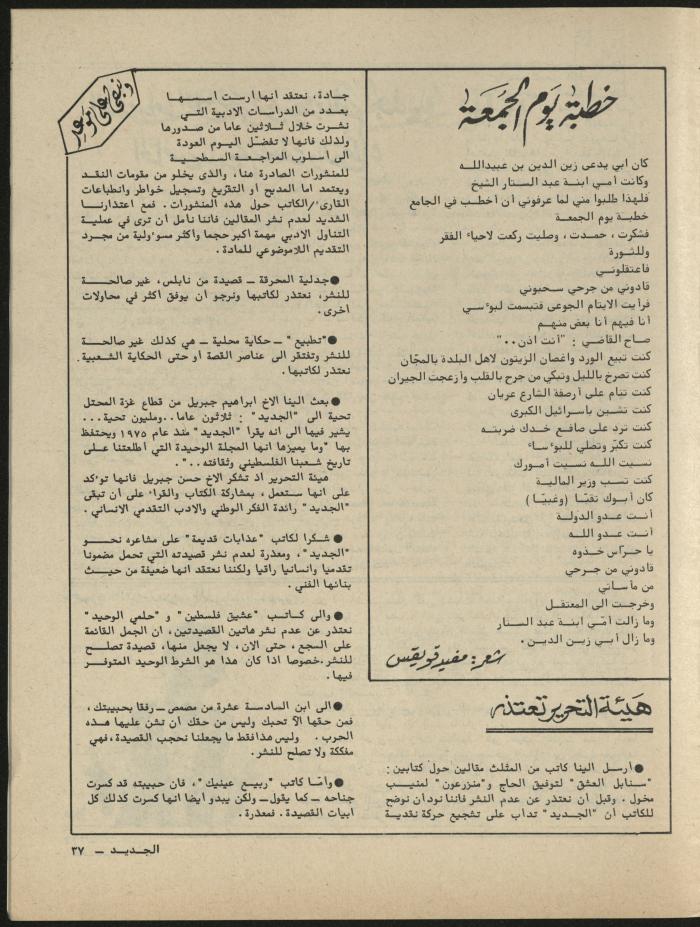 خطبة يوم الجمعة
كان ابي يدعى زين الدين بن عبيدالله
وكانت أمي ابنة عبد الستار الشيخ
فلهذا طلبوا مني لما عرفوني أن أخطب في الجامع
خطبة يوم الجمعة
فشكرت ، حمدت ، وصليت ركعت لاحياء الفقر
وللثورة
فاعتقلوني
قادوني من جرحي سحبوني
فرأيت الايتام الجوعى فتبسمت لبوءسي
أنا فيهم أنا بعض منهم
صاح القاضي : "أنت اذن.."
كنت تبيع الورد واغصان الزيتون لاهل البلدة بالمجّان
كنت تصرخ بالليل وتبكي من جرح بالقلب وأزعجت الجيران
كنت تنام على أرصفة الشارع عريان
كنت تشين باسرائيل الكبرى
كنت ترد على صافع خدك ضربته
كنت تكبّر وتصلي للبوءساء
نسيت الله نسيت أمورك
كنت تسب وزير المالية
كان أبوك تقيّا (وغبيّا )
أنت عدو الدولة
أنت عدو الله
يا حرّاس خذوه
قادوني من جرحي
من مأساتي
وخرجت الى المعتقل
وما زالت أمّي ابنة عبد الستار
وما زال أبي زين الدين .
شعر : مفيد قويقس
هيئة التحرير تعتذر
●أرسل الينا كاتب من المثلث مقالين حول كتابين :
"سنابل العشق" لتوفيق الحاج و"منزرعون" لمنيب
مخول . وقبل أن نعتذر عن عدم النشر فاننا نود أن نوضح
للكاتب أن "الجديد" تدأب على تشجيع حركة نقدية
ونبقى على موعد
جادة، نعتقد انها ارست اسسها
بعدد من الدراسات الادبية التي
نشرت خلال ثلاثين عاما من صدورها
ولذلك فانها لا تفضّل اليوم العودة
الى أسلوب المراجعة السطحية
للمنشورات الصادرة هنا، والذى يخلو من مقومات النقد
ويعتمد اما المديح أو التقريع وتسجيل خواطر وانطباعات
القارىء/الكاتب حول هذه المنشورات . فمع اعتذارنا
الشديد لعدم نشر المقالين فاننا نأمل أن نرى في عملية
التناول الادبي مهمة أكبر حجما وأكثر مسوءولية من مجرد
التقديم اللاموضوعي للمادة .
●جدلية المحرقة – قصيدة من نابلس، غير صالحة
للنشر، نعتذر لكاتبها ونرجو أن يوفق أكثر في محاولات
أخرى .
●"تطبيع" – حكاية محلية – هي كذلك غير صالحة
للنشر وتفتقر الى عناصر القصة أو حتى الحكاية الشعبية .
نعتذر لكاتبها .
●بعث الينا الاخ ابراهيم جبريل من قطاع غزة المحتل
تحية الى "الجديد" : ثلاثون عاما..ومليون تحية...
يشير فيها الى انه يقرأ "الجديد" منذ عام ١٩٧٥ ويحتفظ
بها "وما يميزها انها المجلة الوحيدة التي أطلعتنا على
تاريخ شعبنا الفلسطيني وثقافته .." .
هيئة التحرير اذ تشكر الاخ حسن جبريل فانها توءكد
على انها ستعمل ، بمشاركة الكتاب والقراء على أن تبقى
"الجديد" رائدة الفكر الوطني والادب التقدمي الانساني .
● شكرا لكاتب "عذابات قديمة" على مشاعره نحو
"الجديد" ، ومعذرة لعدم نشر قصيدته التي تحمل مضمونا
تقدميا وانسانيا راقيا ولكننا نعتقد انها ضعيفة من حيث
بنائها الفني .
●والى كاتب "عشيق فلسطين" و "حلمي الوحيد"
نعتذر عن عدم نشر هاتين القصيدتين، ان الجمل القائمة
على السجع ، حتى الان، لا يجعل منها، قصيدة تصلح
للنشر.خصوصا اذا كان هذا هو الشرط الوحيد المتوفر
فيها .
●الى ابن السادسة عشرة من مصمص – رفقا بحبيبتك ،
فمن حقها الا تحبك وليس من حقك أن تشن عليها هذه
الحرب . وليس هذا فقط ما يجعلنا نحجب القصيدة ، فهي
مفككة ولا تصلح للنشر.
●وأمّا كاتب "ربيع عينيك" ، فان حبيبته قد كسرت
جناحه – كما يقول – ولكن يبدو أيضا انها كسرت كذلك كل
أبيات القصيدة . فمعذرة .
الجديد – ٣٧